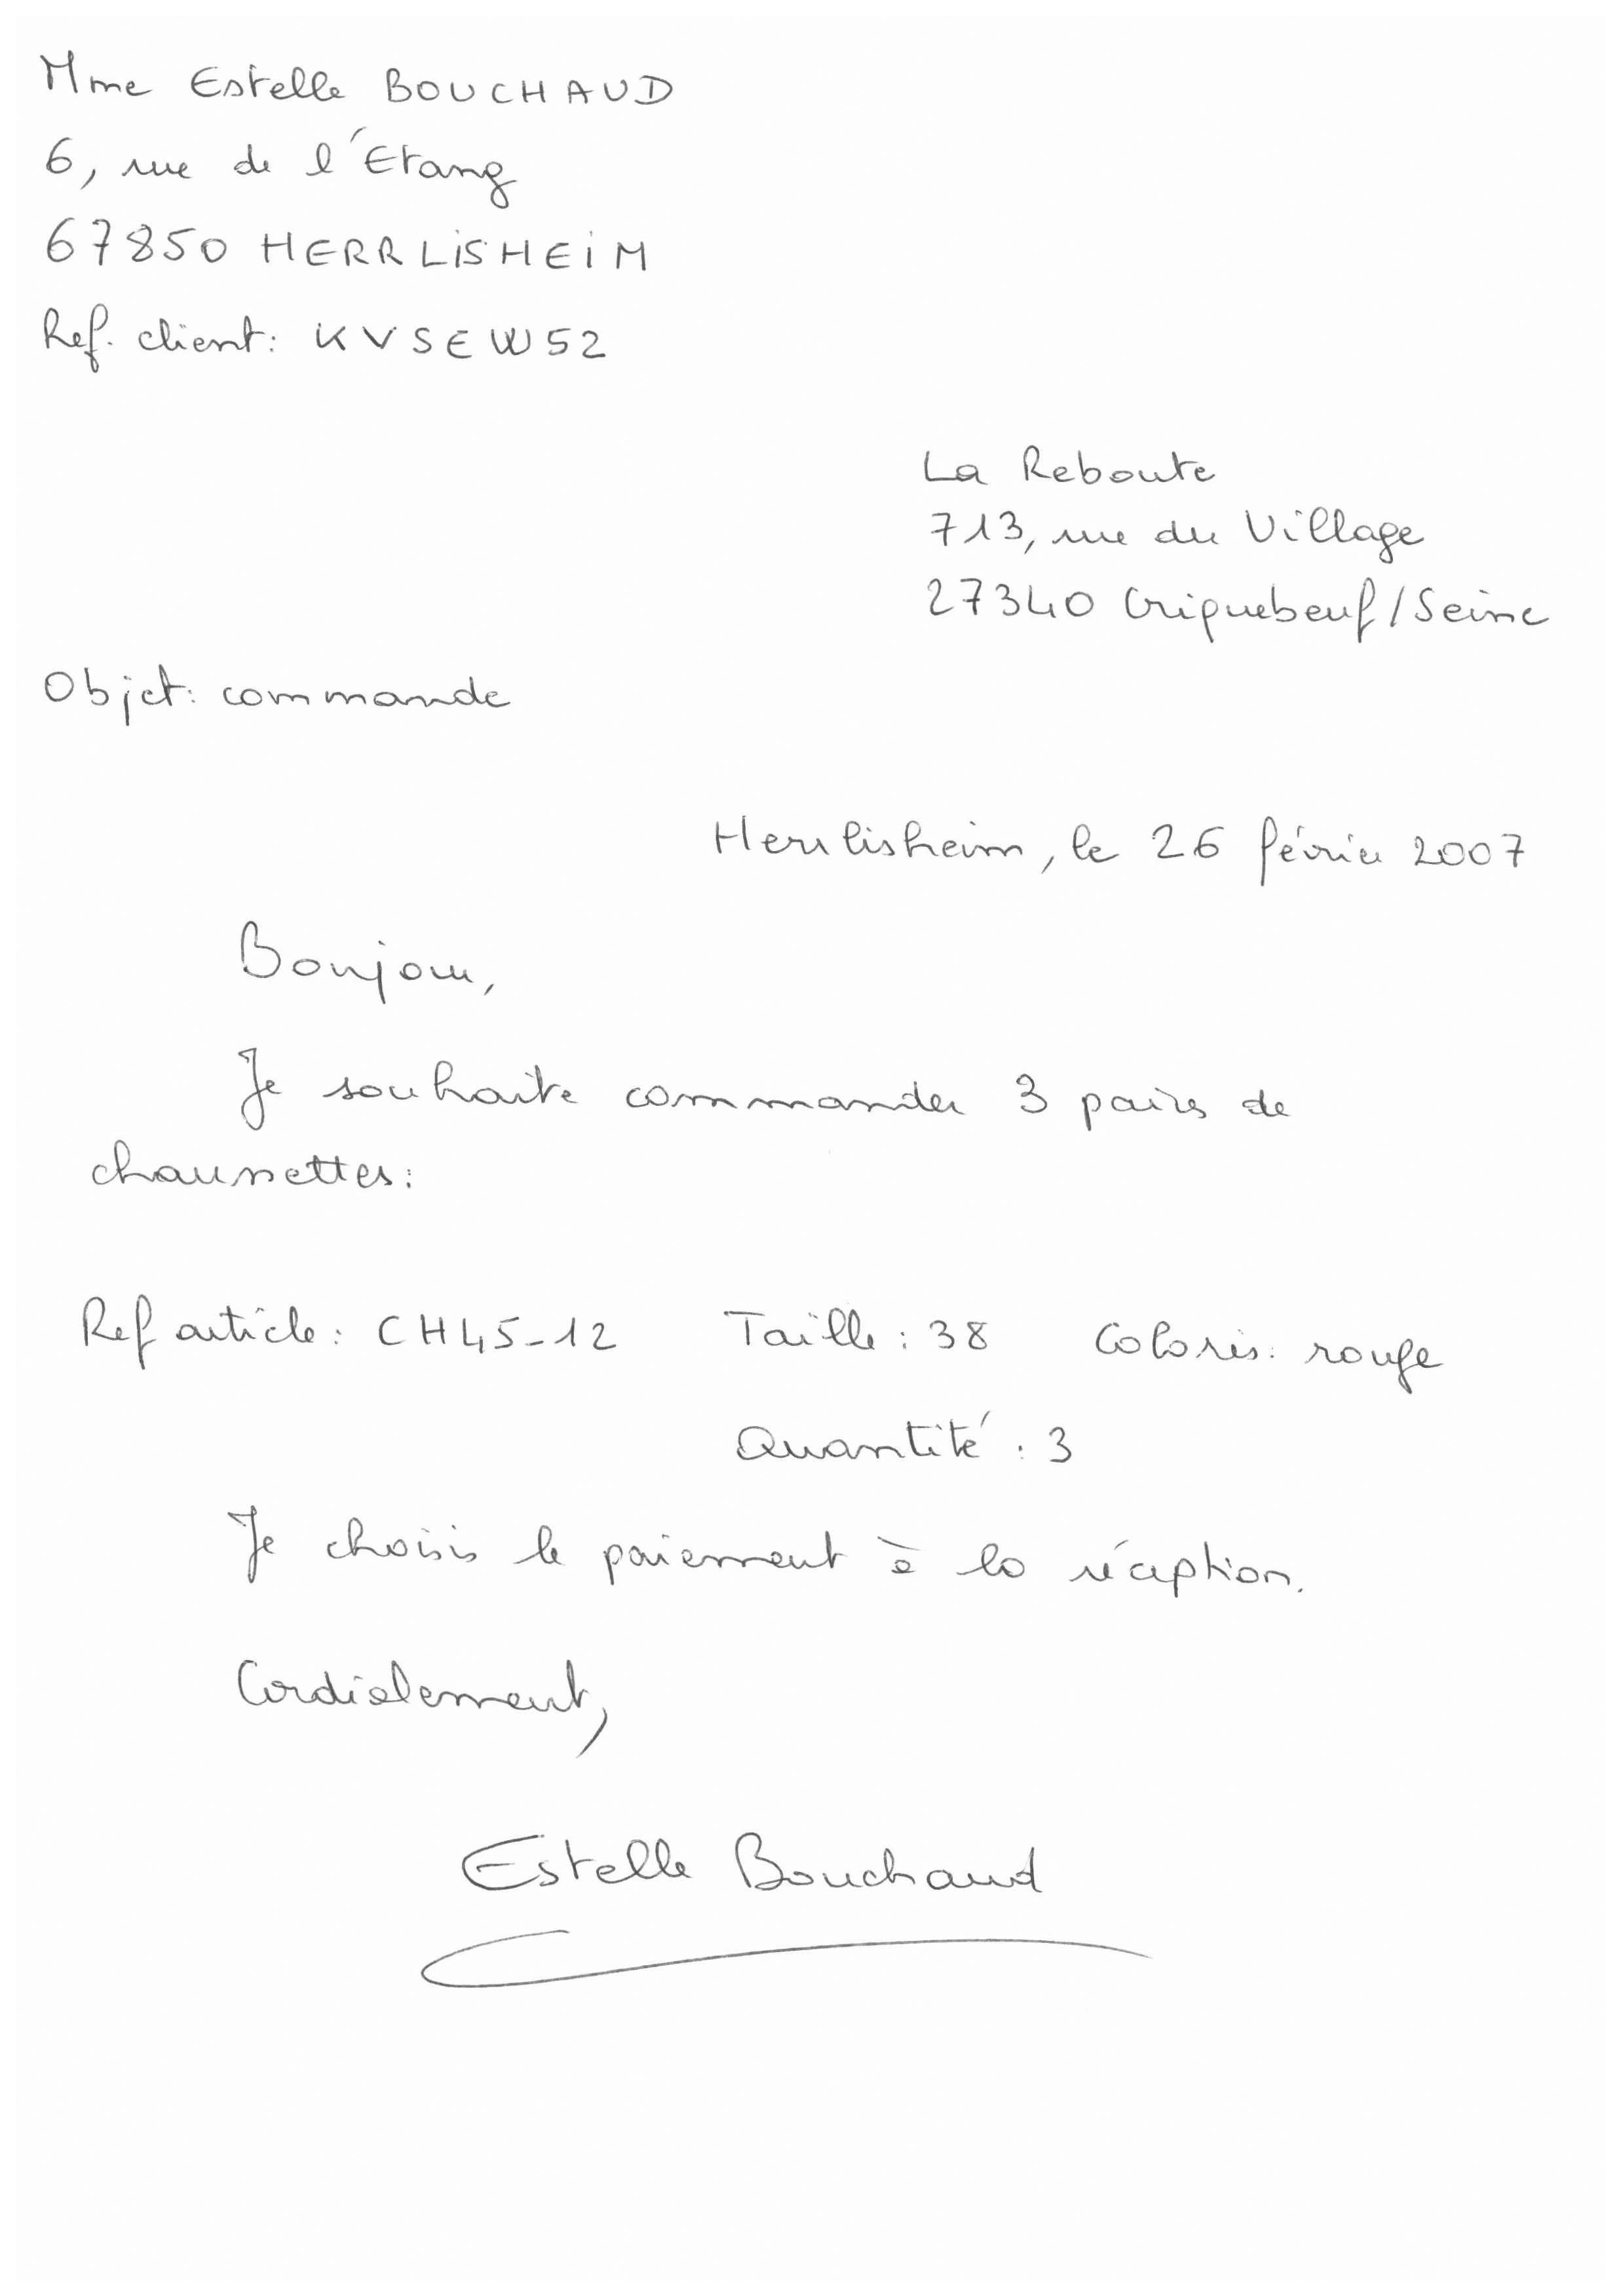 Mme Estelle BOUCHAUD
6, rue de l'Etang
67850 HERRLISHEIM
Ref. client: KVSEW52
La Reboute
713, rue du Village
27340 Criquebeuf/Seine
Objet: commande
Herrlisheim, le 26 février 2007
Bonjour,
Je souhaite commander 3 paires de
chaussettes:
Ref article: CH45-12 Taille: 38 Coloris: rouge
Quantité: 3
Je choisis le paiement à la réception.
Cordialement,
Estelle Bouchaud